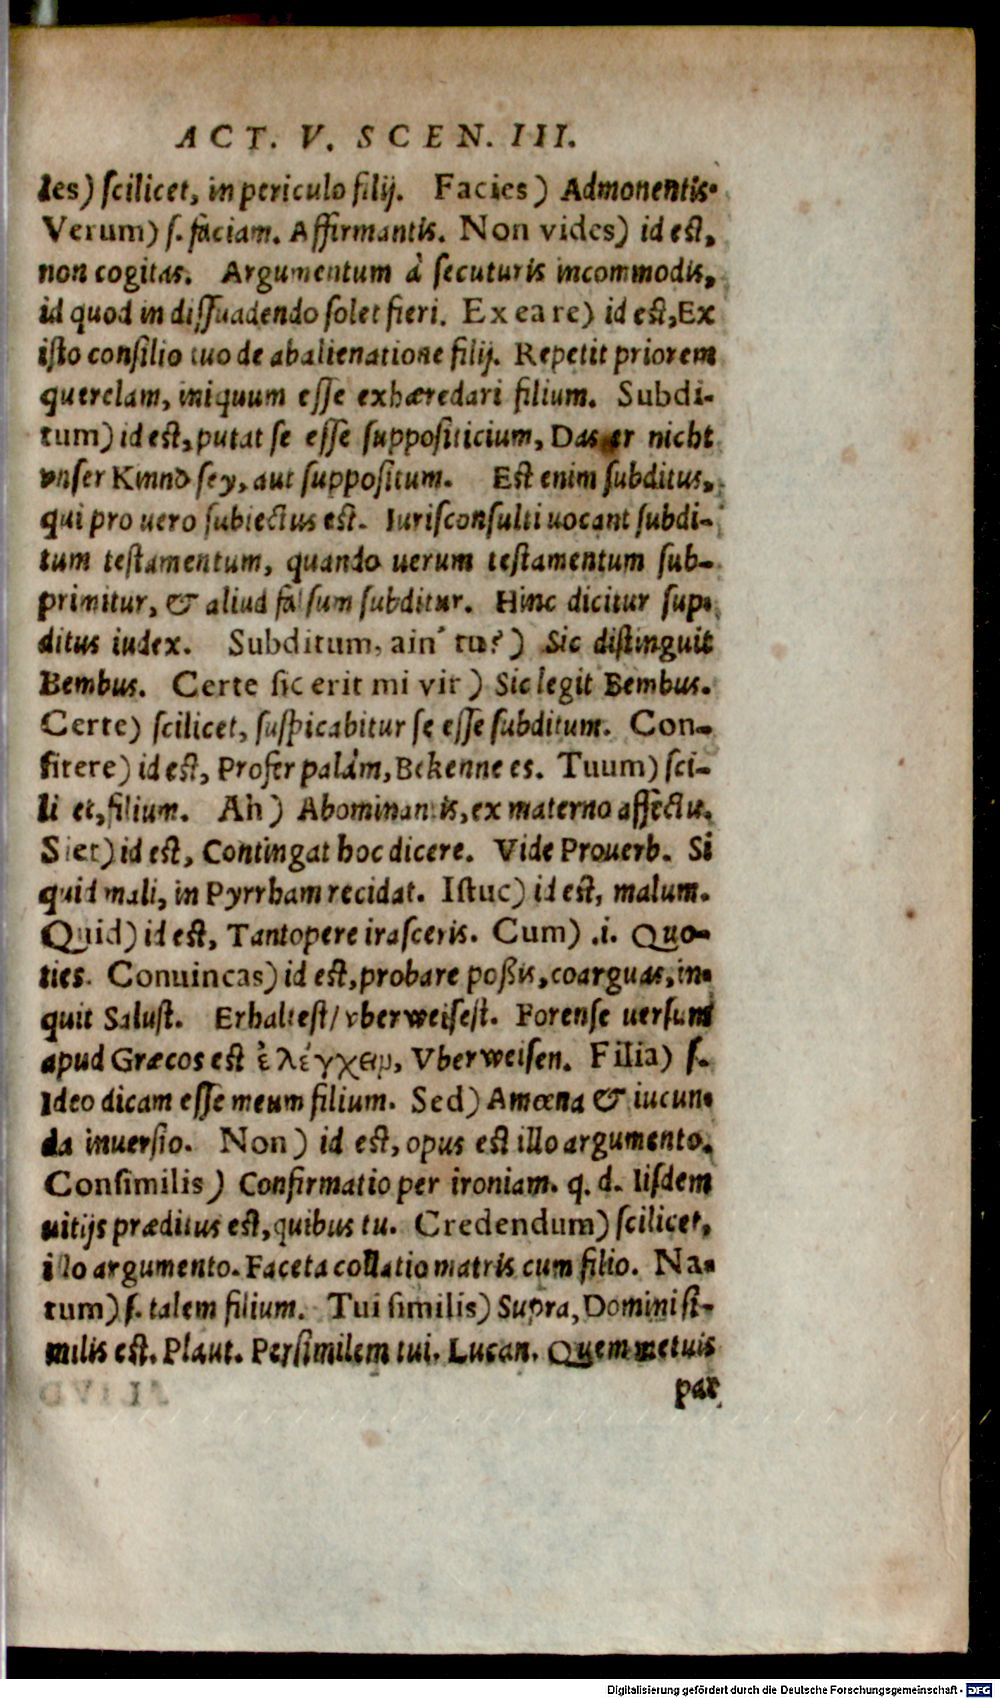 ACT. V. SCEN. III.
les) scilicet, in periculo filij. Facies) Admonentis.
Verum) s. faciam. Affirmantis. Non vides) id est,
non cogitas. Argumentum à secuturis incommodis,
id quod in dissuadendo solet fieri. Ex ea re) id est, Ex
isto consilio tuo de abalienatione filij. Repetit priorem
querelam, iniquum esse exhæredari filium. Subdi-
tum) id est, putat se esse supposititium, Das er nicht
vnser Kinnd sey, aut suppositum. Est enim subditus,
qui pro uero subiectus est. Iurisconsulti uocant subdi-
tum testamentum, quando uerum testamentum sub-
primitur, & aliud falsum subditur. Hinc dicitur sup-
ditus iudex. Subditum, ain' tu?) Sic distinguit
Bembus. Certe sic erit mi vir) Sic legit Bembus.
Certe) scilicet, suspicabitur se esse subditum. Con-
fitere) id est, Profer palàm, Bekenne es. Tuum) sci-
li et, filium. Ah) Abominantis, ex materno affectu.
Siet) id est, Contingat hoc dicere. Vide Prouerb. Si
quid mali, in Pyrrham recidat. Istuc) id est, malum.
Quid) id est, Tantopere irasceris. Cum) .i. Quo-
ties. Conuincas) id est, probare poßis, coarguas, in-
quit Salust. Erhaltest/ vberweisest. Forense uersum
apud Græcos est ἐλέγχειν, Vberweisen. Filia) s.
Ideo dicam esse meum filium. Sed) Amœna & iucun-
da inuersio. Non) id est, opus est illo argumento.
Consimilis) Confirmatio per ironiam. q. d. Iisdem
uitijs præditus est, quibus tu. Credendum) scilicet,
illo argumento. Faceta collatio matris cum filio. Na-
tum) s. talem filium. Tui similis) Supra, Domini si-
milis est. Plaut. Persimilem tui. Lucan. Quem metuis
par
Digitalisierung gefördert durch die Deutsche Forschungsgemeinschaft - DFG